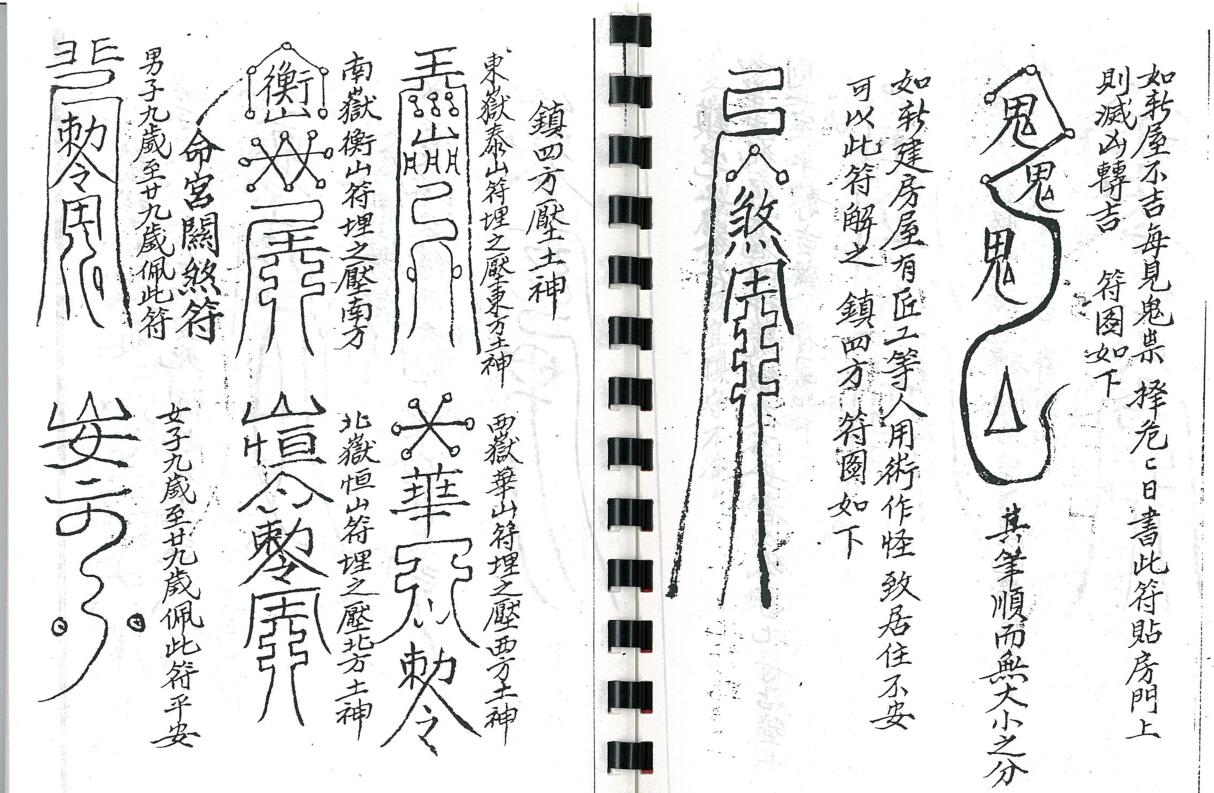 如新屋不吉每見鬼祟 择危日書此符貼房門上
則滅凶轉吉 符图如下
鬼
鬼
鬼
其筆順而無大小之分
如新建房屋有匠工等人用術作怪致居住不安
可以此符解之 鎮四方 符图如下
煞
鎮四方壓土神
東嶽泰山符埋之壓東方土神
山
西嶽華山符埋之壓西方土神
華
勅令
南嶽衡山符埋之壓南方
衡山
北嶽恒山符埋之壓北方土神
山
恒
令
勅令
命宮關煞符
男子九歲至廿九歲佩此符
勅令
女子九歲至廿九歲佩此符平安
安